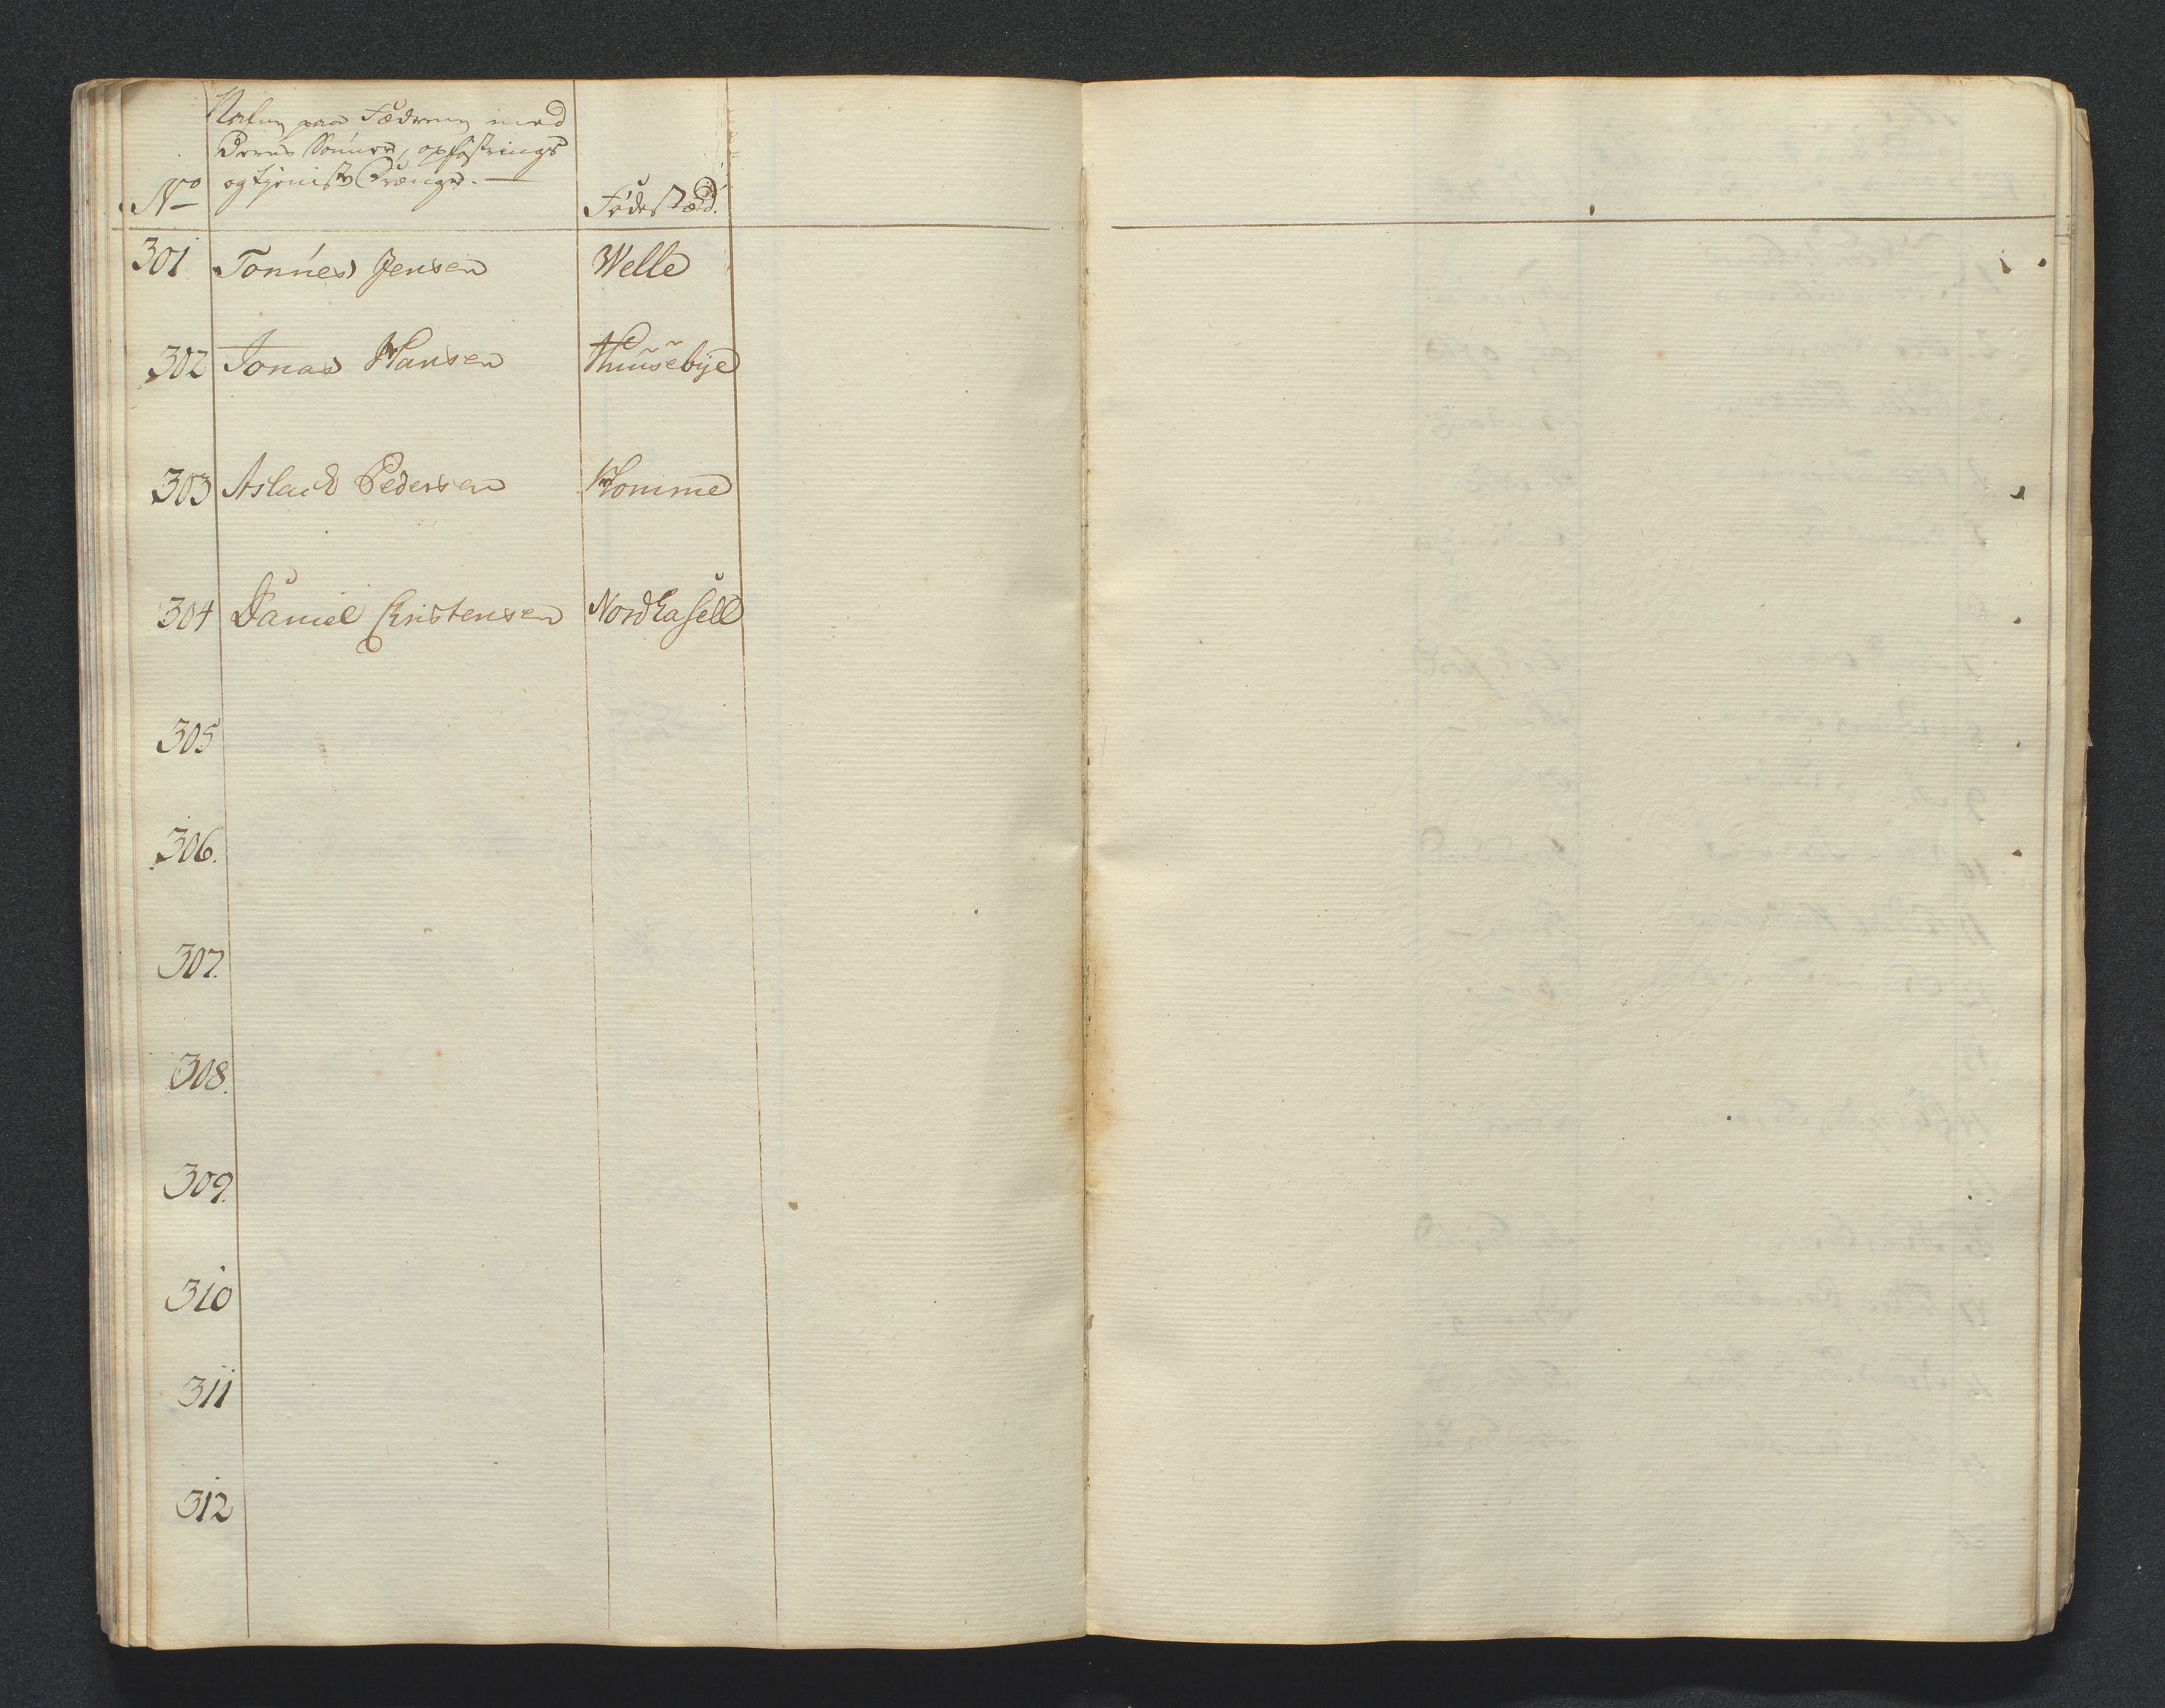 Nafn paa Fædrene med
Deres Sønner, opfostrings
og tjeniste Drænge.
No Fødestæd.
301 Tønnes Jensen Welle
302 Jonas Hansen Huusebye
303 Aslack Pedersen Homme
304 Daniel Christensen Nordhasell
305
306.
307.
308.
309.
310
311
312